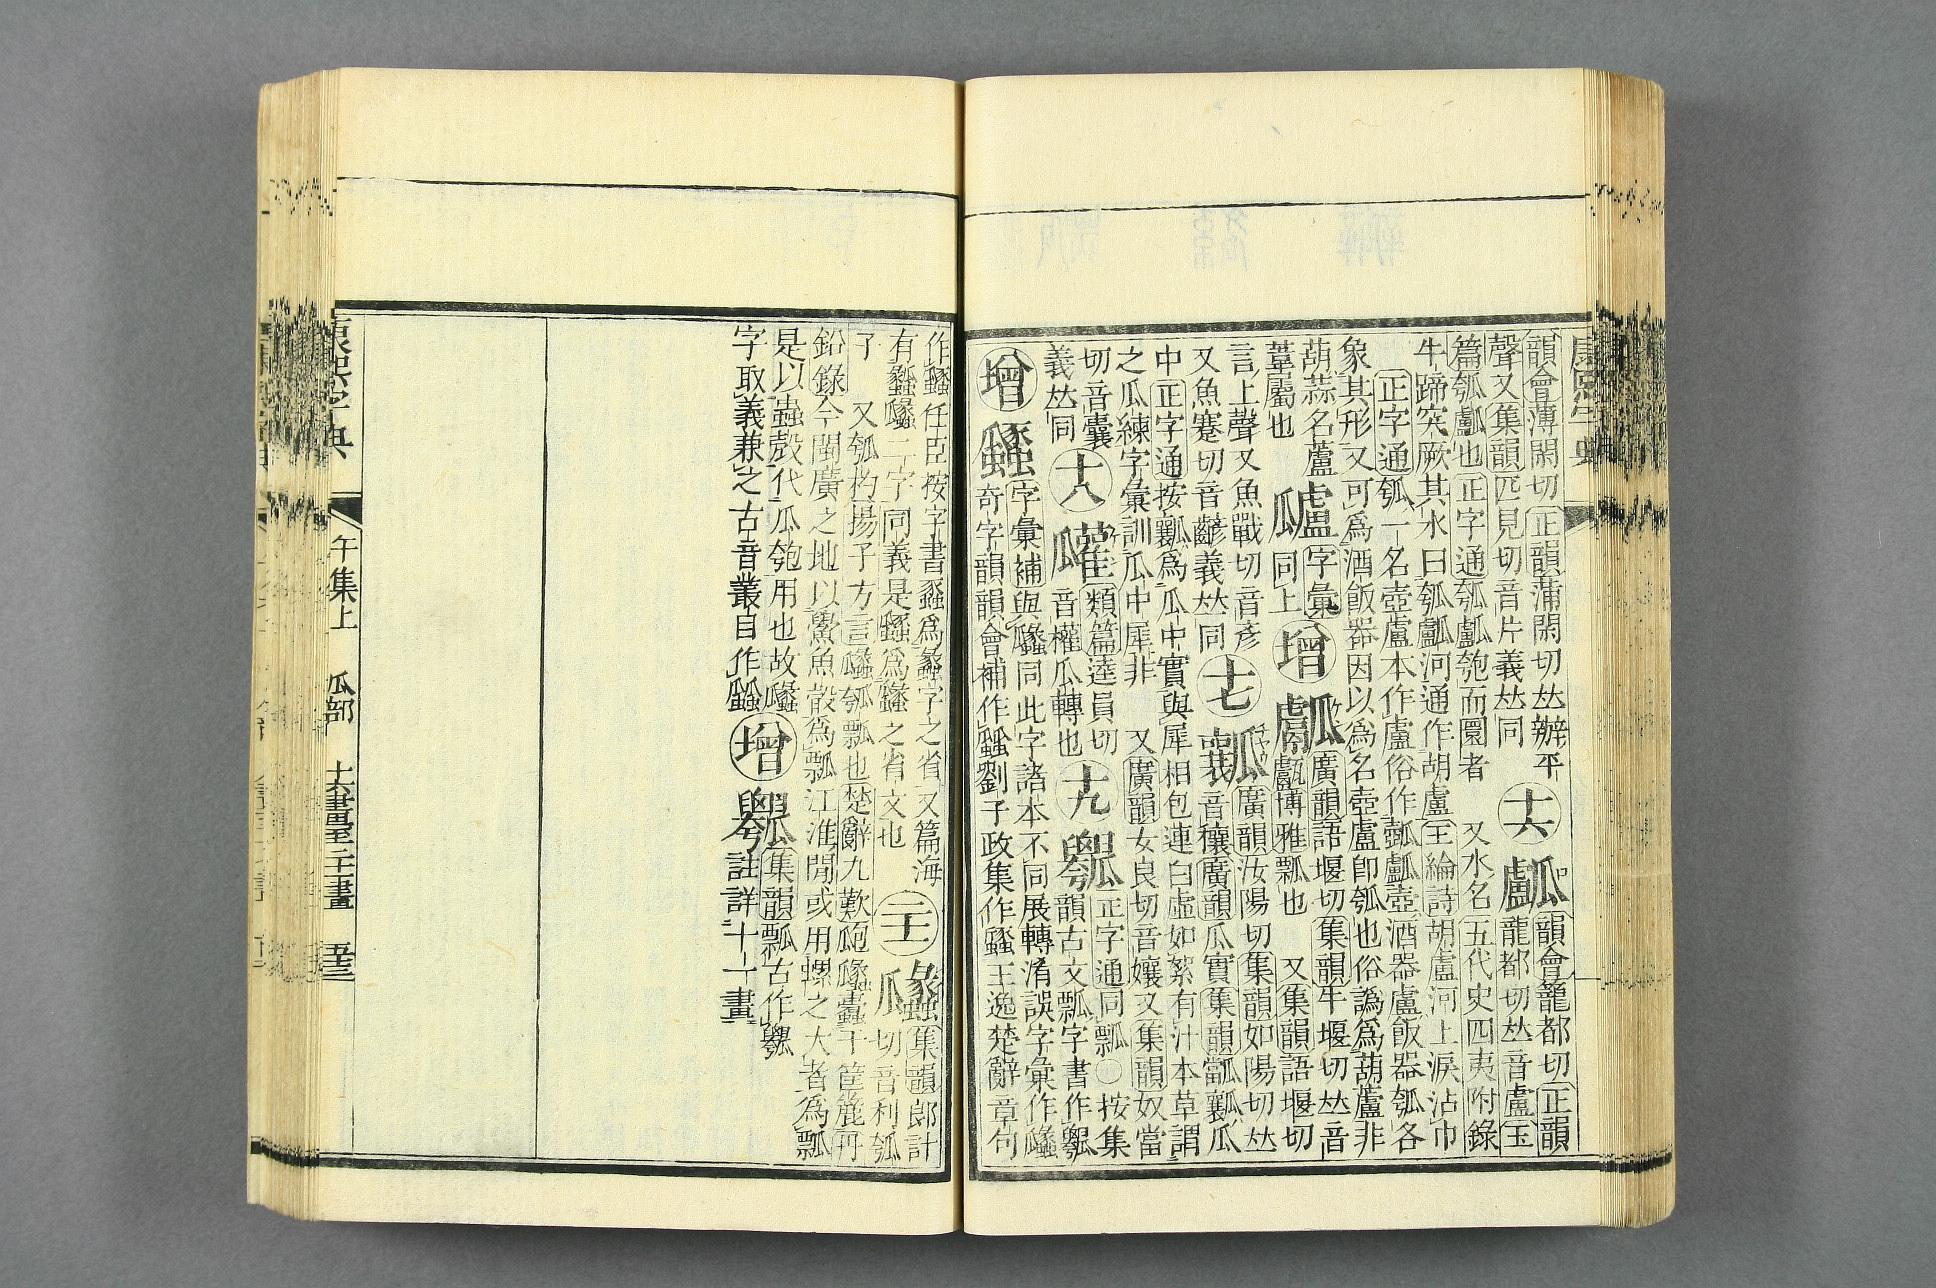 韻會薄閑切正韻蒲閑切𠀤辦平
聲又集韻匹見切音片義𠀤同
十六
瓠
韻會籠都切正韻
龍都切𠀤音盧玉
篇瓠𤬛也正字通瓠𤬛匏而圜者
又水名五代史四夷附錄
牛蹄突厥其水曰瓠𤬛河通作胡盧王綸詩胡盧河上淚沾巾
正字通瓠一名壺盧本作盧俗作
壺酒器盧飯器瓠各
象其形又可爲酒飯器因以爲名壺盧卽瓠也俗譌爲葫蘆非
葫蒜名蘆
葦屬也
字彙
同上
增
廣韻語堰切集韻牛堰切𠀤音
甗博雅瓢也
又集韻語堰切
言上聲又魚戰切音彥
又魚蹇切音齴義𠀤同
十七
瓤
廣韻汝陽切集韻如陽切𠀤
音穰廣韻瓜實集韻
瓤瓜
中正字通按瓤爲瓜中實與犀相包連白虛如絮有汁本草謂
之瓜練字彙訓瓜中犀非
又廣韻女良切音孃又集韻奴當
切音囊
義𠀤同
十八
類篇逵員切
音權瓜轉也
十九
正字通同瓢○按集
韻古文瓢字書作
增
字彙補與蠡同此字諸本不同展轉淆誤字彙作
奇字韻韻會補作
劉子政集作
王逸楚辭章句
作
任臣按字書
爲蠡字之省又篇海
有
二字同義是
爲
之省文也
二十
集韻郎計
切音利瓠
子
又瓠杓揚子方言
瓠瓢也楚辭九歎
蠹于筐簏丹
鉛錄今閩廣之地以鱟魚殼爲瓢江淮閒或用螺之大者爲瓢
是以蟲殼代瓜匏用也故
字取義兼之古音叢目作
增
集韻瓢古作
註詳十一畫
康熙字典
午集上
瓜部
十六畫至二十畫